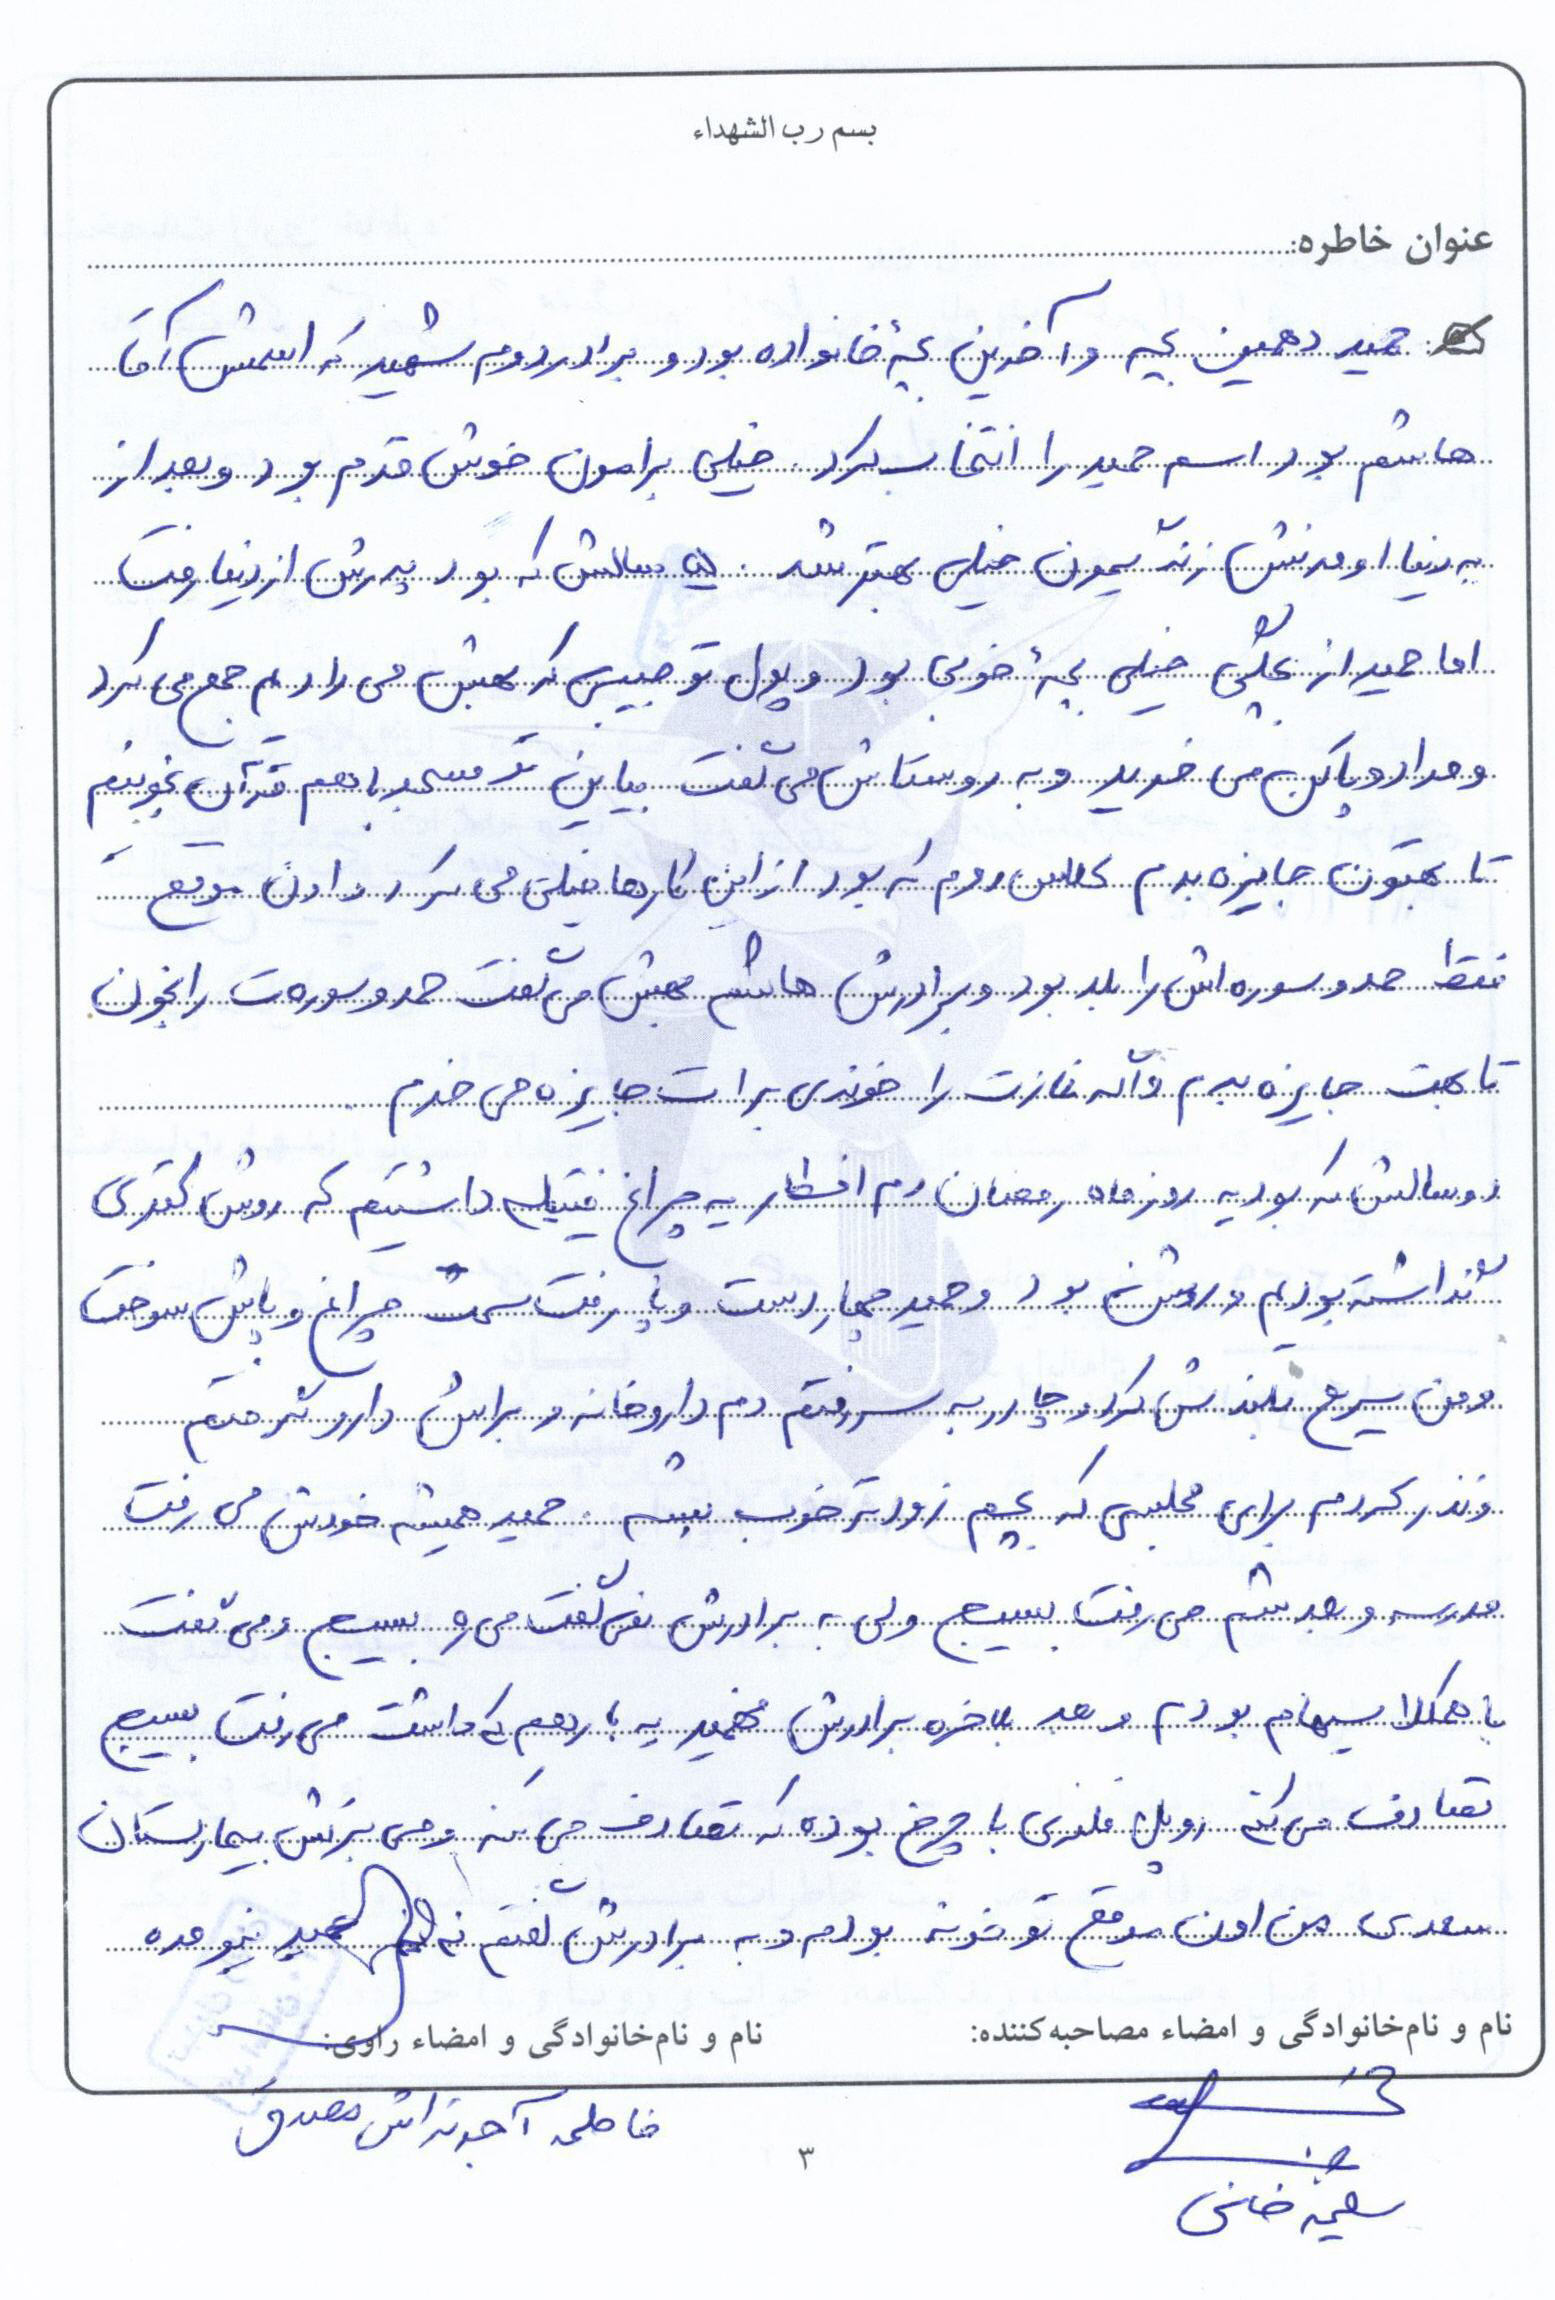 بسم رب الشهداء
عنوان خاطره:
حمید دهمین بچه و آخرین بچهٔ خانواده بود و برادر دوم شهید که اسمش آقا
هاشم بود اسم حمید را انتخاب کرد. خیلی برامون خوش قدم بود و بعد از
به دنیا اومدنش زندگیمون خیلی بهتر شد. سالش که بود پدرش از دنیا رفت
اما حمید از بچگی خیلی بچهٔ خوبی بود و پول تو جیبی که بهش می دادیم جمع می کرد
و مداد و پاکن می خرید و به دوستاش می گفت بیاین تو مسجد با هم قرآن بخونیم
تا بهتون جایزه بدم کلاس دوم که بود از این کارها خیلی می کرد و اون موقع
فقط حمد و سوره اش را بلد بود و برادرش هاشم بهش می گفت حمد و سوره ت را بخون
تا بهت جایزه بدم و اگه نمازت را خوندی برات جایزه می خرم
دو سالش که بود یه روز ماه رمضان دم افطار یه چراغ فتیله داشتیم که روش کتری
گذاشته بودیم و روشن بود و حمید چهار دست و پا رفت سمت چراغ و پاش سوخت
و من سریع بلندش کردم چادر به سر رفتم دم داروخانه و براش دارو گرفتم
و نذر کردم برای مجلسی که بچم زودتر خوب بشه. حمید همیشه خودش می رفت
مدرسه و بعدشم می رفت بسیج ولی به برادرش نمی گفت می ره بسیج و می گفت
با همکلاسیهام بودم و بعد بلاخره برادرش فهمید یه بار هم که داشت می رفت بسیج
تصادف می کنه رو پل فلزی با چرخ بوده که تصادف می کنه و می برنش بیمارستان
سعدی من اون موقع تو خونه بودم و به برادرش گفتم نه حمید نیومده
نام و نام‌خانوادگی و امضاء مصاحبه‌کننده:
نام و نام‌خانوادگی و امضاء راوی:
فاطمه آجرتراش مصدق
خانی
۳